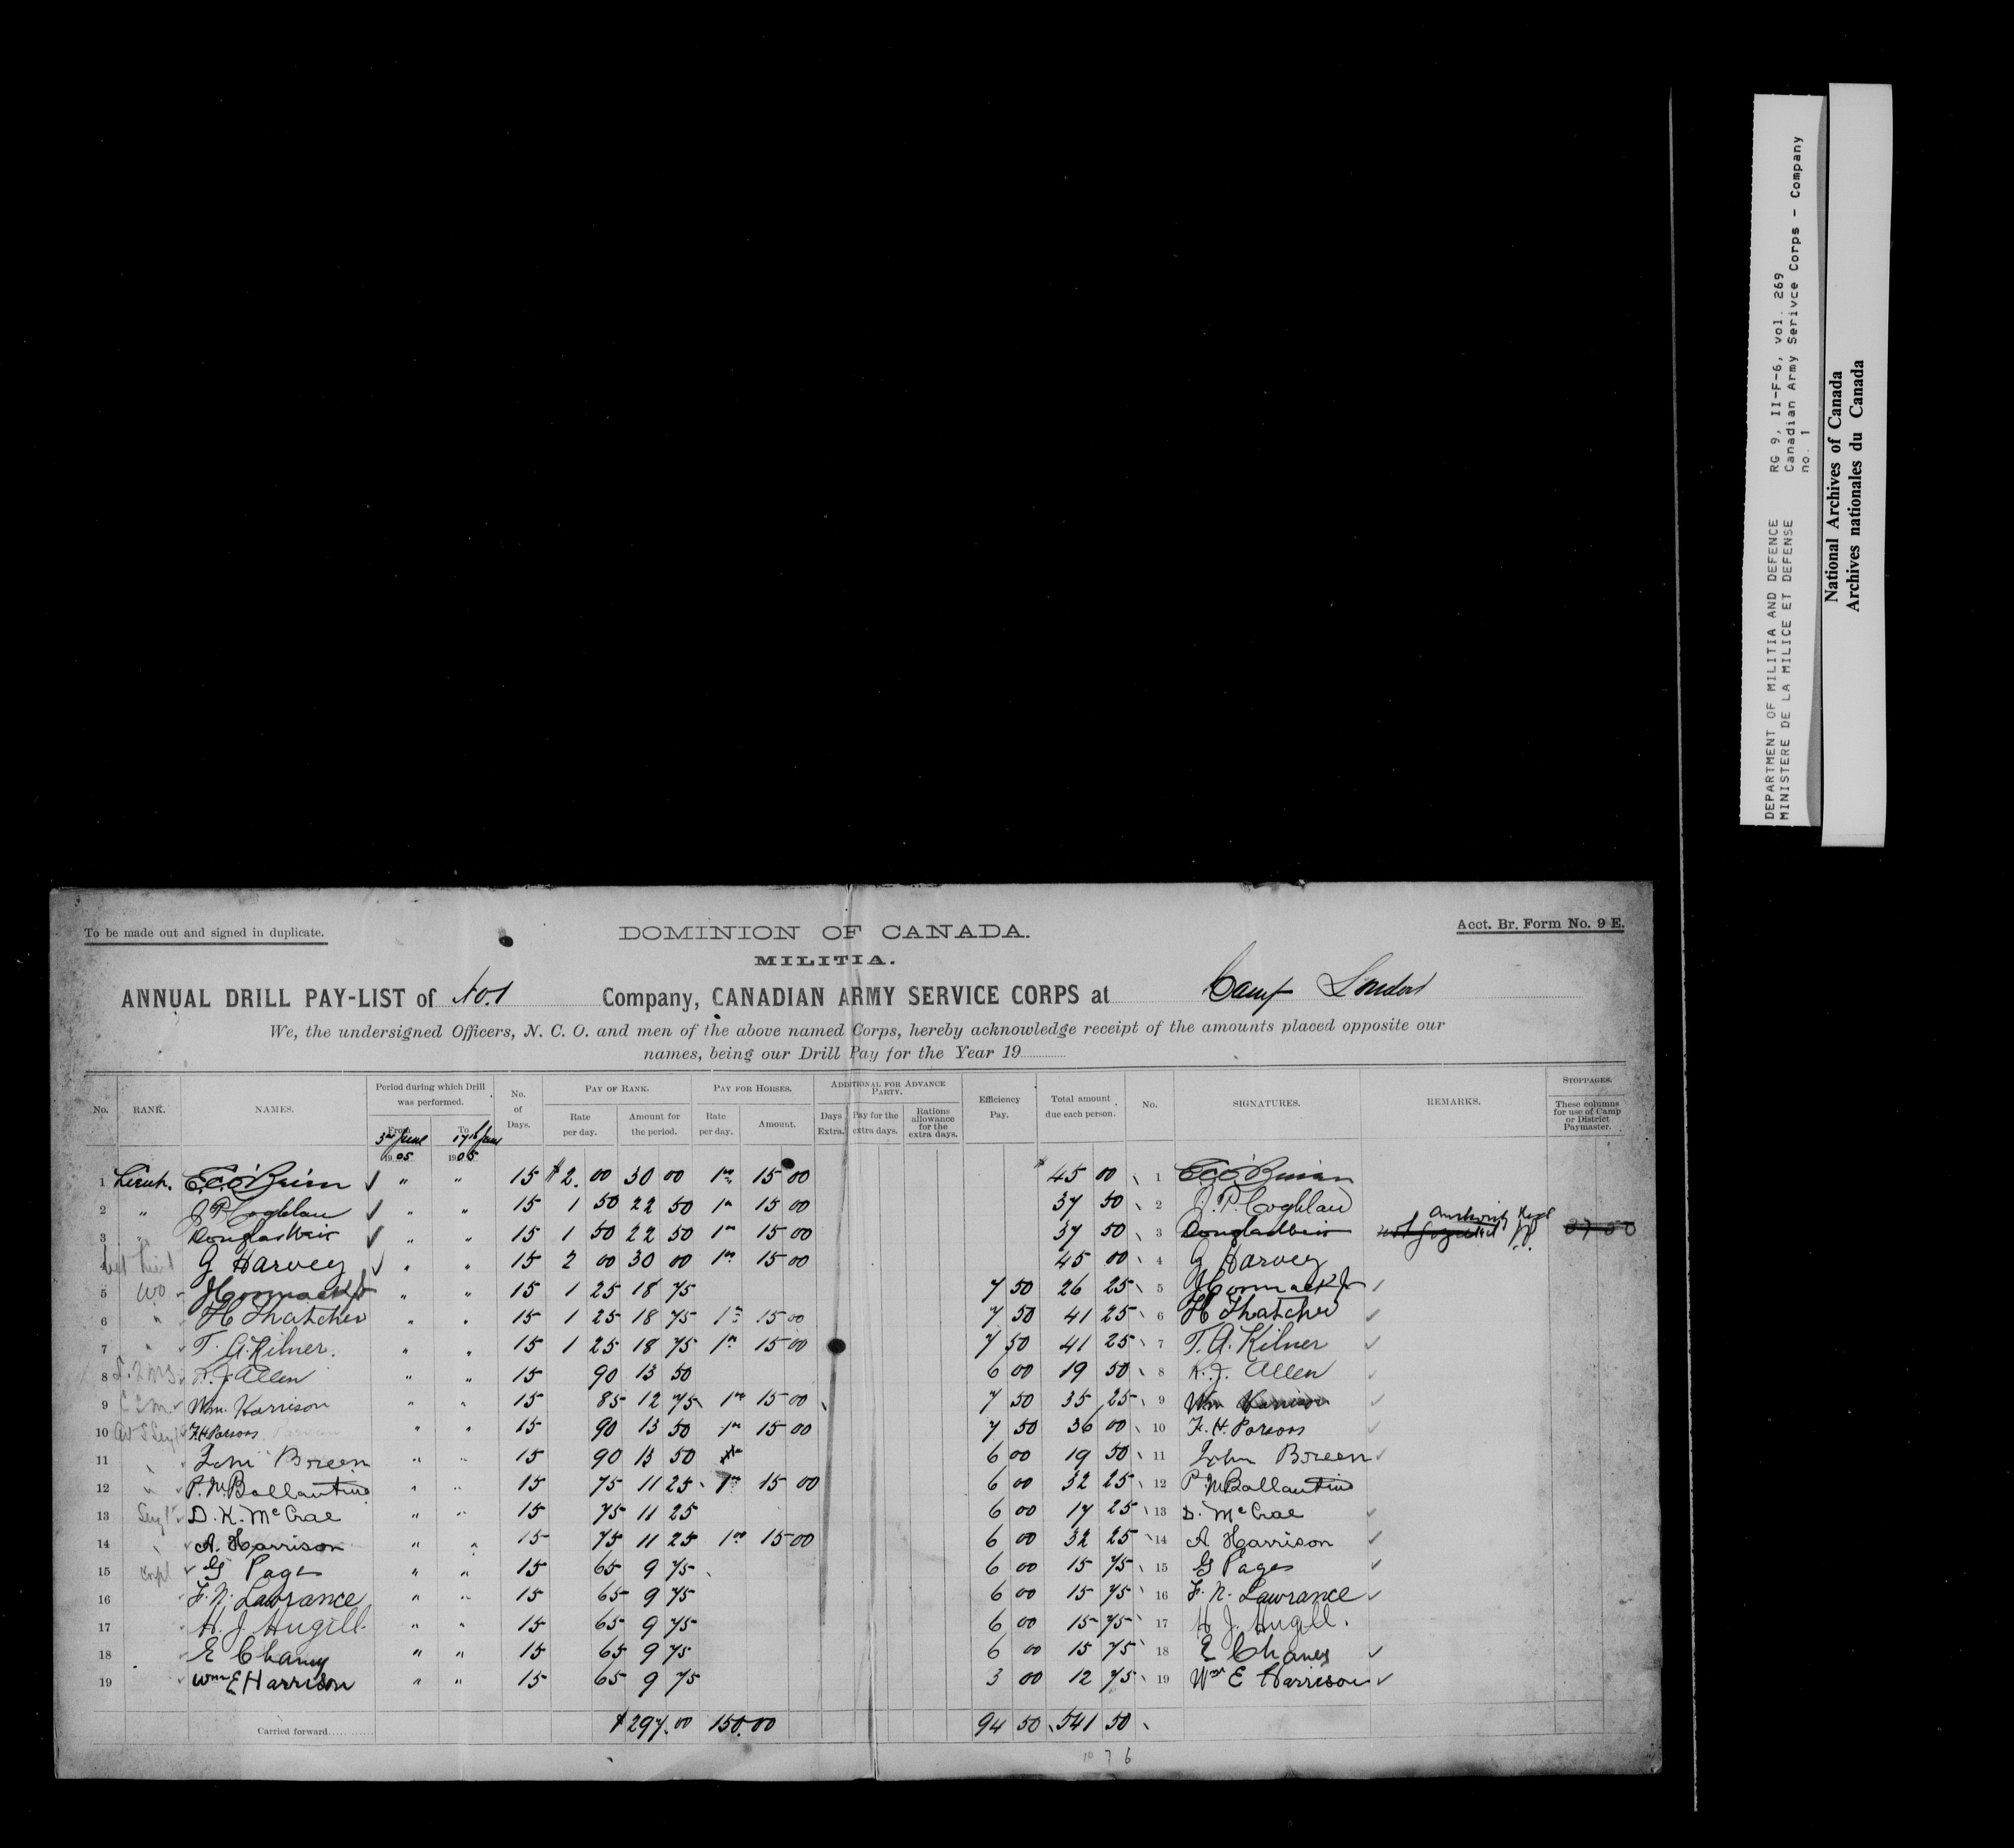 To be made out and signed in duplicate.
DOMINION OF CANADA.
Acct. Br. Form No. 9 E.
MILITIA.
ANNUAL DRILL PAY-LIST of No. 1 Company, CANADIAN ARMY SERVICE CORPS at Camp London
We, the undersigned Officers, N. C. O. and men of the above named Corps, hereby acknowledge receipt of the amounts placed opposite our
names, being our Drill Pay for the Year 19
No. RANK. NAMES. Period during which Drill was performed. No. of Days. PAY OF RANK. PAY FOR HORSES. ADDITIONAL FOR ADVANCE PARTY. Efficiency Pay. Total amount due each person. No. SIGNATURES. REMARKS. STOPPAGES.
From To Rate per day. Amount for the period. Rate per day. Amount. Days Extra. Pay for the extra days. Rations allowance for the extra days. These columns for use of Camp or District Paymaster.
3rd June 1905 17th June 1905
1 Lieut. E.C. O'Brien " " 15 $2. 00 30 00 1 00 15 00 $45 00 1 E.C. O'Brien
2 " J. P. Coghlan " " 15 1 50 22 50 1 00 15 00 37 50 2 J. P. Coghlan
3 " Douglas Weir " " 15 1 50 22 50 1 00 15 00 37 50 3 Douglas Weir not gazetted 37 50
4 G Harvey " " 15 2 00 30 00 1 00 15 00 45 00 4 G Harvey
5 WO " " 15 1 25 18 75 7 50 26 25 5
6 " H Thatcher " " 15 1 25 18 75 1 00 15 00 7 50 41 25 6 H Thatcher
7 " T. A. Kilner. " " 15 1 25 18 75 1 00 15 00 7 50 41 25 7 T. A. Kilner
8 K. J. Allen " " 15 90 13 50 6 00 19 50 8 K. J. Allen
9 Wm. Harrison " " 15 85 12 75 1 00 15 00 7 50 35 25 9 Wm Harrison
10 F. H. Parsons " " 15 90 13 50 1 00 15 00 7 50 36 00 10 F. H. Parsons
11 " John Breen " " 15 90 13 50 6 00 19 50 11 John Breen
12 " P. M. Ballantine " " 15 75 11 25 1 00 15 00 6 00 32 25 12 P M Ballantine
13 Sergt D. K. McCrae " " 15 75 11 25 6 00 17 25 13 D. McCrae
14 " A. Harrison " " 15 75 11 25 1 00 15 00 6 00 32 25 14 A Harrison
15 Corpl G Page " " 15 65 9 75 6 00 15 75 15 G Page
16 F. N. Lawrance " " 15 65 9 75 6 00 15 75 16 F. N. Lawrance
17 H. J. Hugill " " 15 65 9 75 6 00 15 75 17 H J. Hugill.
18 E Chaney " " 15 65 9 75 6 00 15 75 18 E Chaney
19 Wm E Harrison " " 15 65 9 75 3 00 12 75 19 Wm E Harrison
Carried forward $297.00 150.00 94 50 541 50
10 7 6
DEPARTMENT OF MILITIA AND DEFENCE RG 9, II-F-6, vol. 269
MINISTERE DE LA MILICE ET DEFENSE Canadian Army Serivce Corps - Company
no. 1
National Archives of Canada
Archives nationales du Canada